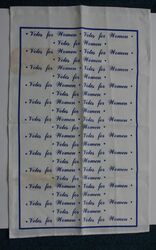 Votes for Women • Votes for Women •
• Votes for Women •
Votes for Women • Votes for Women •
• Votes for Women •
Votes for Women • Votes for Women •
• Votes for Women •
Votes for Women • Votes for Women •
• Votes for Women •
Votes for Women • Votes for Women •
• Votes for Women •
Votes for Women • Votes for Women •
• Votes for Women •
Votes for Women • Votes for Women •
• Votes for Women •
Votes for Women • Votes for Women •
• Votes for Women •
Votes for Women • Votes for Women •
• Votes for Women •
Votes for Women • Votes for Women •
• Votes for Women •
Votes for Women • Votes for Women •
• Votes for Women •
Votes for Women • Votes for Women •